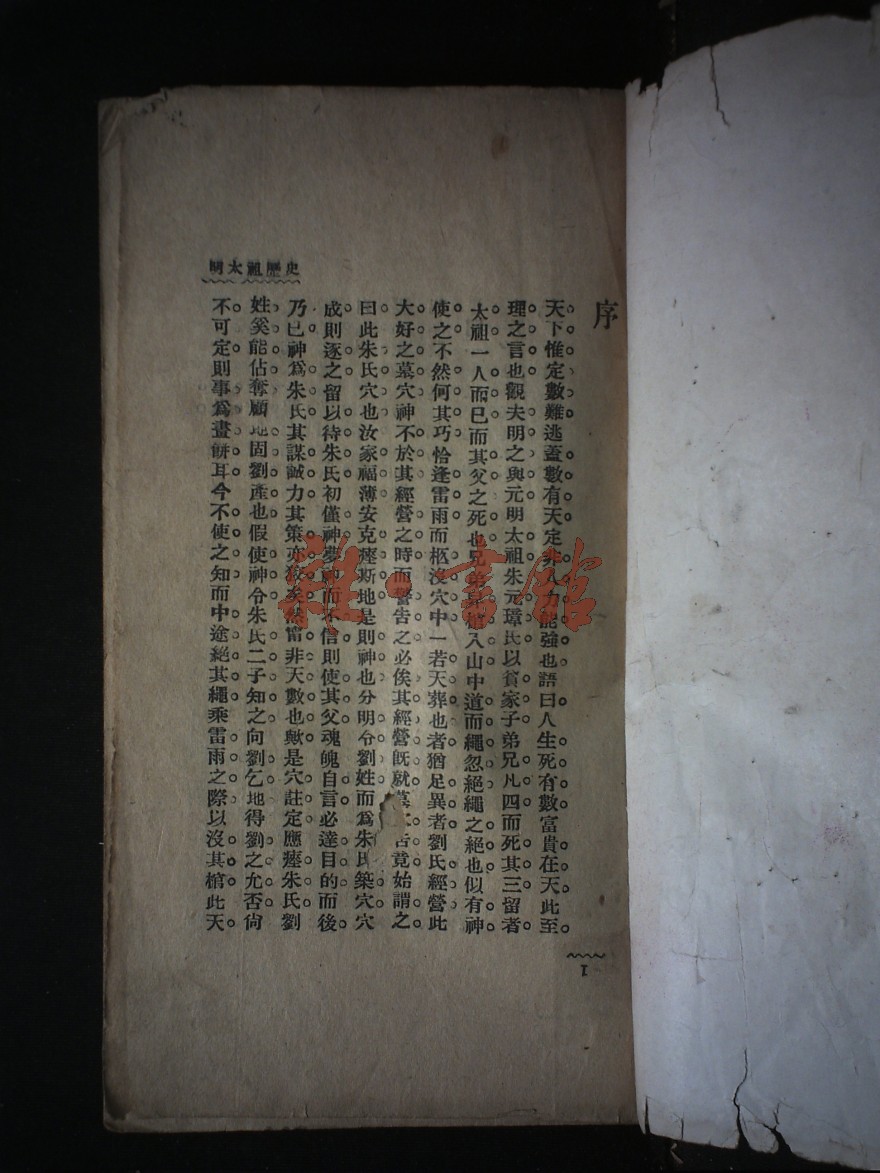 明太祖歷史
序
天下惟定數難逃蓋數有天定非人力能強也語曰人生死有數富貴在天此至
理之言也觀夫明之與元明太祖朱元璋氏以貧家子弟兄凡四而死其三留者
太祖一人而已而其父之死也兄弟舁棺入山中道而繩忽絕繩之絕也似有神
使之不然何其巧恰逢雷雨而柩沒穴中一若天葬也者猶足異者劉氏經營此
大好之墓穴神不於其經營之時而警告之必俟其經營既就葬 告竟始謂之
曰此朱氏穴也汝家福薄安克瘞斯地是則神也分明令劉姓而為朱氏築穴穴
成則逐之留以待朱氏初僅神夢神而不信則使其父魂魄自言必達目的而後
乃已神爲朱氏其謀誠力其策亦狡矣然甯非天數也歟是穴註定應瘞朱氏劉
姓奚能佔奪顧地固劉產也假使神令朱氏二子知之向劉乞地得劉之允否尙
不可定則事爲畫餅耳今不使之知而中途絕其繩乘雷雨之際以沒其棺此天
1
雒•書館